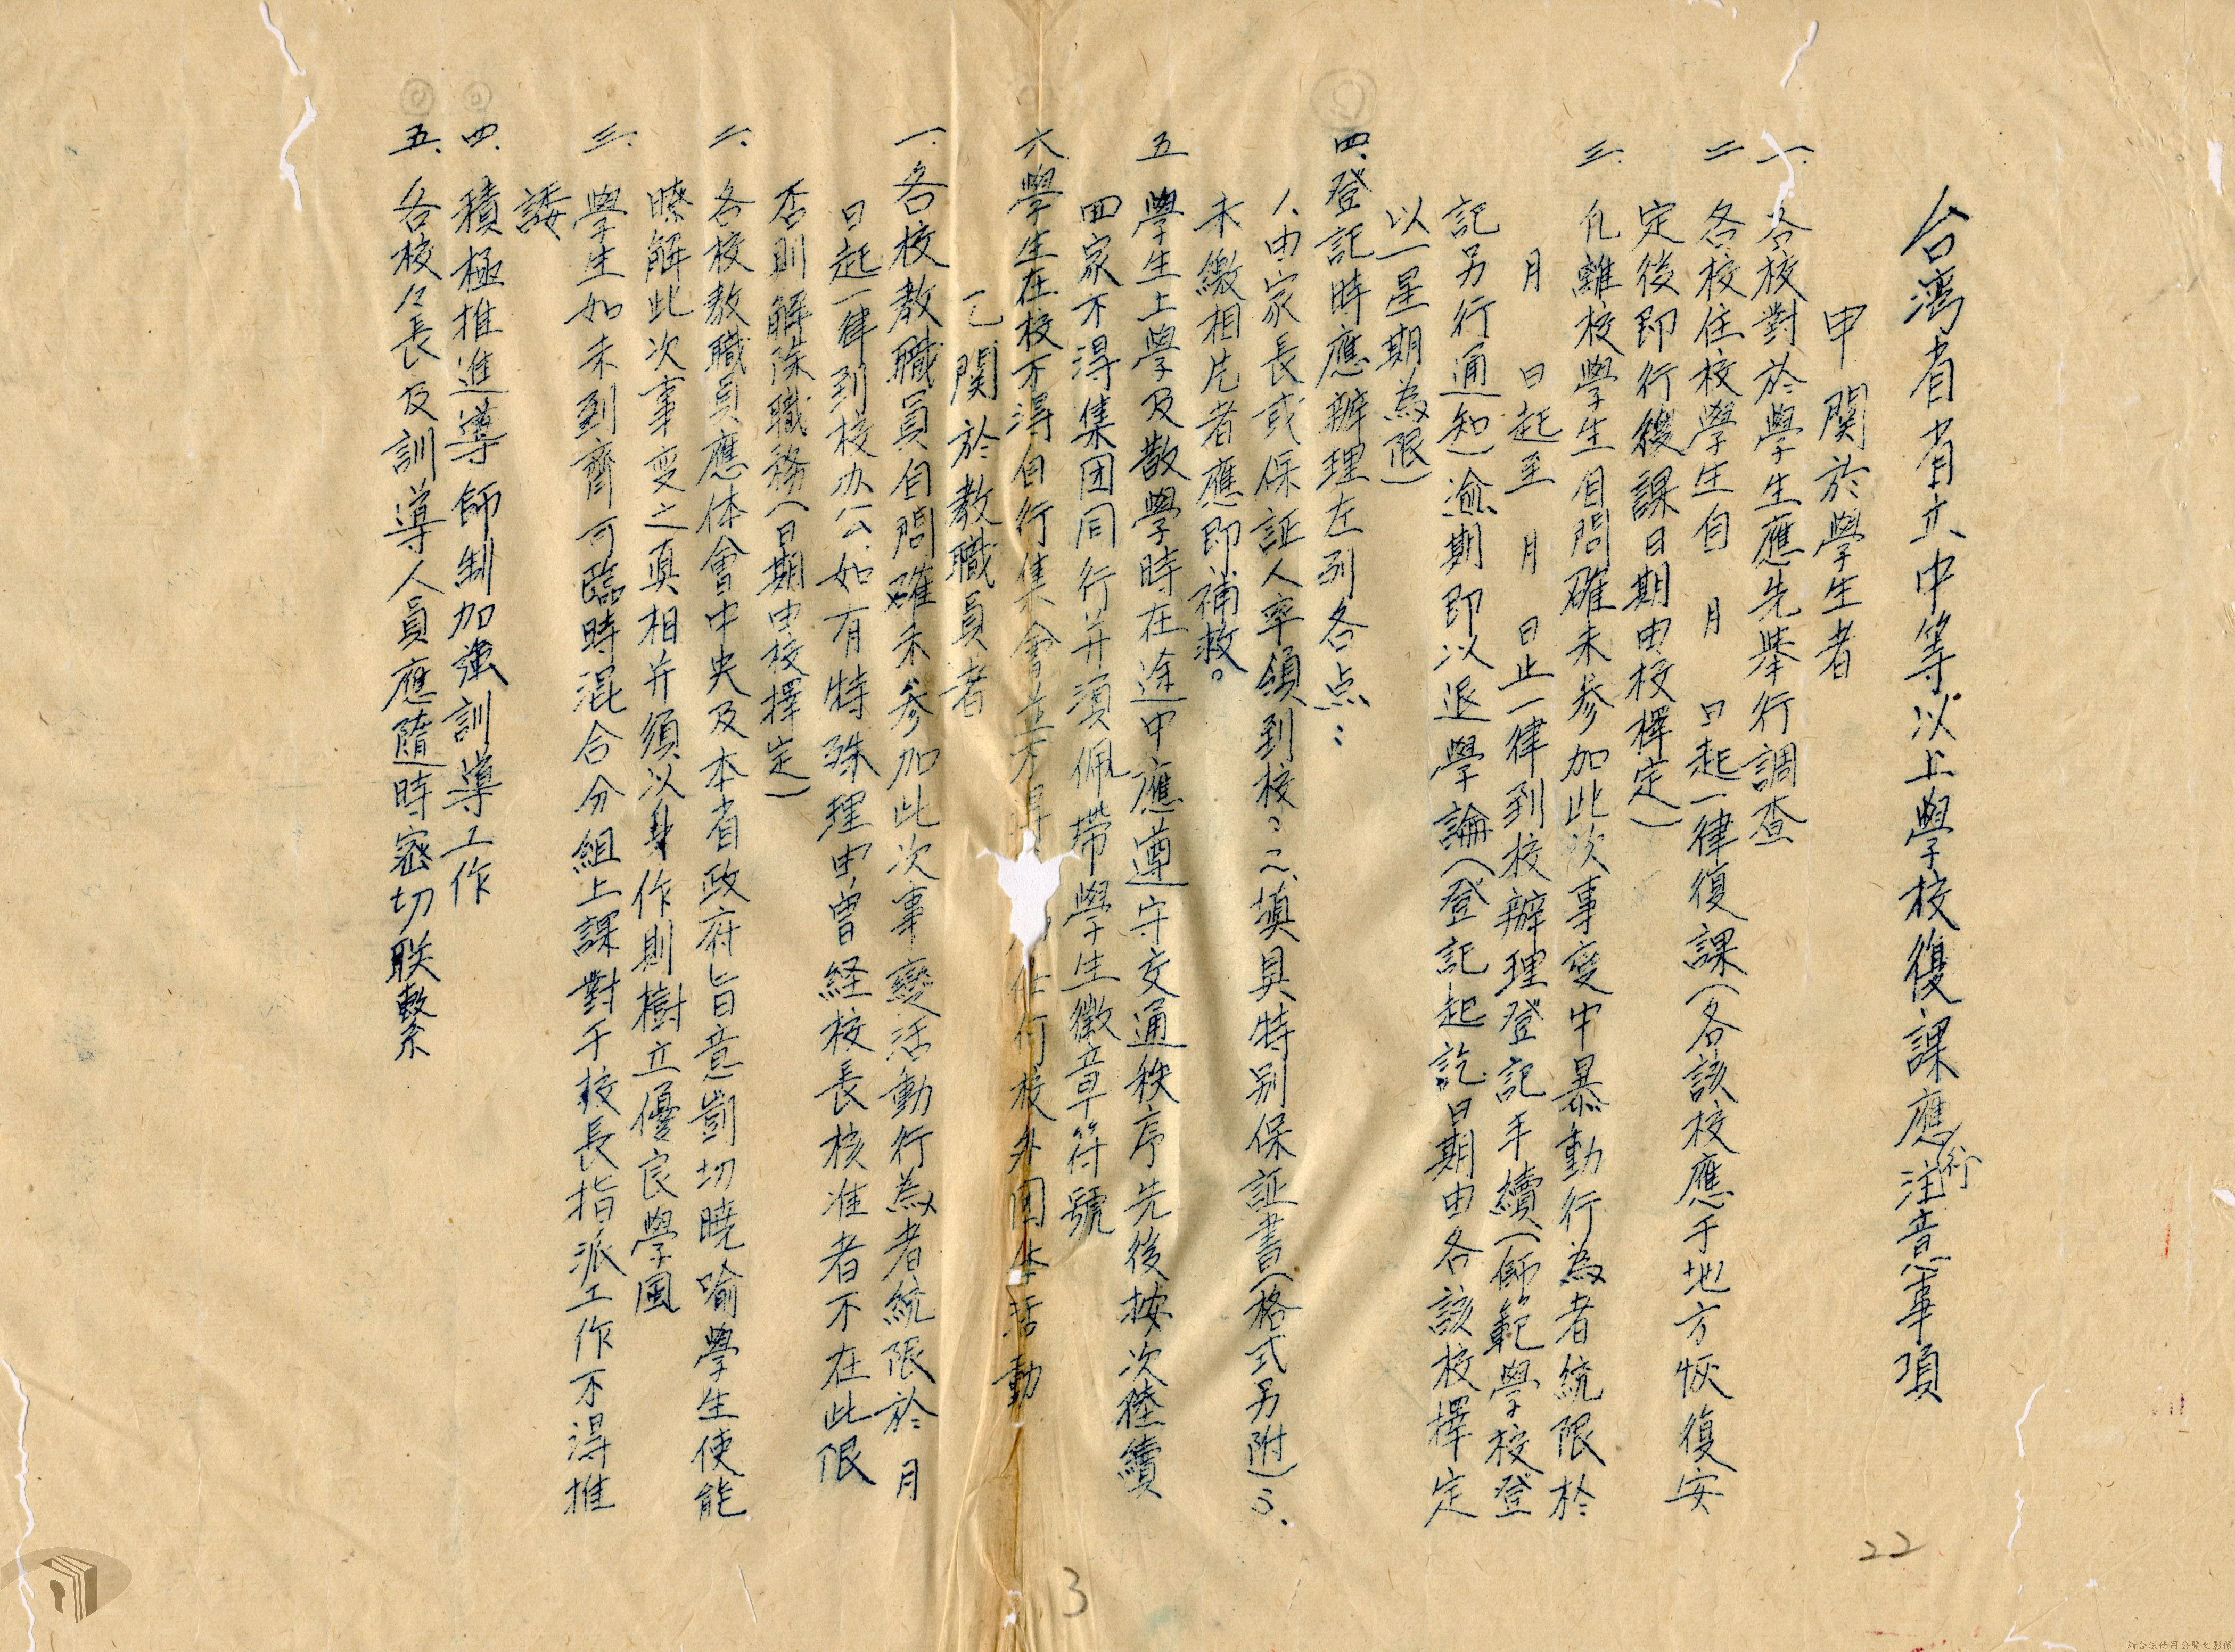 台灣省省立中等以上學校復課應行注意事項
甲 関於學生者
一、各校對於學生應先舉行調查
二 各校住校學生自 月 日起一律復課(各該校應于地方恢復安
定後即行復課日期由校擇定)
三、凡離校學生自問確未参加此次事变中暴動行為者統限於
月 日起至 月 日止一律到校辦理登記手續(師範學校登
記另行通知)逾期即以退學論(登記起訖日期由各該校擇定
以一星期為限)
四、登記時應辦理左列各点:
1、由家長或保証人率領到校:2、填具特別保証書(格式另附)3、
未繳相片者應即補救。
五 學生上學及散學時在途中應遵守交通秩序先後按次陸續
回家不得集団同行并須佩带學生徽章符號
六學生在校不得自行集會並不得 任何校外團体活動
乙、関於教職員者
一、各校教職員自問確未参加此次事變活動行為者統限於 月
日起一律到校办公如有特殊理由曾経校長核准者不在此限
否則解除職務(日期由校擇定)
二、各校教職員應体會中央及本省政府旨意剴切曉喻學生使能
暸解此次事变之真相并須以身作則樹立優良學風
三、學生如未到齊可臨時混合分組上課對于校長指派工作不得推
諉
四、積極推進導師制加強訓導工作
五、各校々長及訓導人員應隨時密切联繫
22
3
請合法使用公開之影像